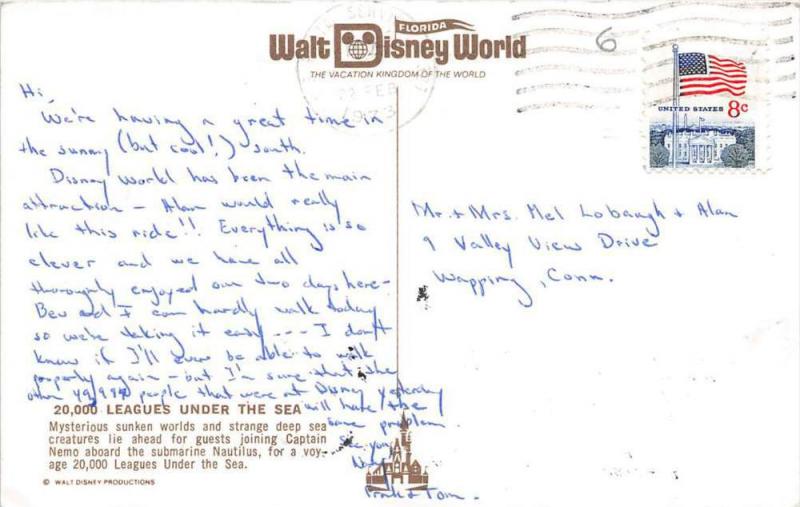 FLORIDA
Walt Disney World
THE VACATION KINGDOM OF THE WORLD
22 FEB
1973
6
UNITED STATES 8c
Hi,
We're having a great time in
the sunny (but cool!) south.
Disney World has been the main
attraction - Alan would really
like this ride!! Everything is so
clever and we have all
thoroughly enjoyed our two days here-
Bev and I can hardly walk today
so we're taking it easy --- I don't
know if I'll ever be able to walk
properly again - but I'm sure that the
other 49,999 people that were at Disney yesterday
will have the
same problem.
See you,
Tom.
Mr. + Mrs. Mel Lobaugh + Alan
9 Valley View Drive
Wapping, Conn.
20,000 LEAGUES UNDER THE SEA
Mysterious sunken worlds and strange deep sea
creatures lie ahead for guests joining Captain
Nemo aboard the submarine Nautilus, for a voy-
age 20,000 Leagues Under the Sea.
© WALT DISNEY PRODUCTIONS